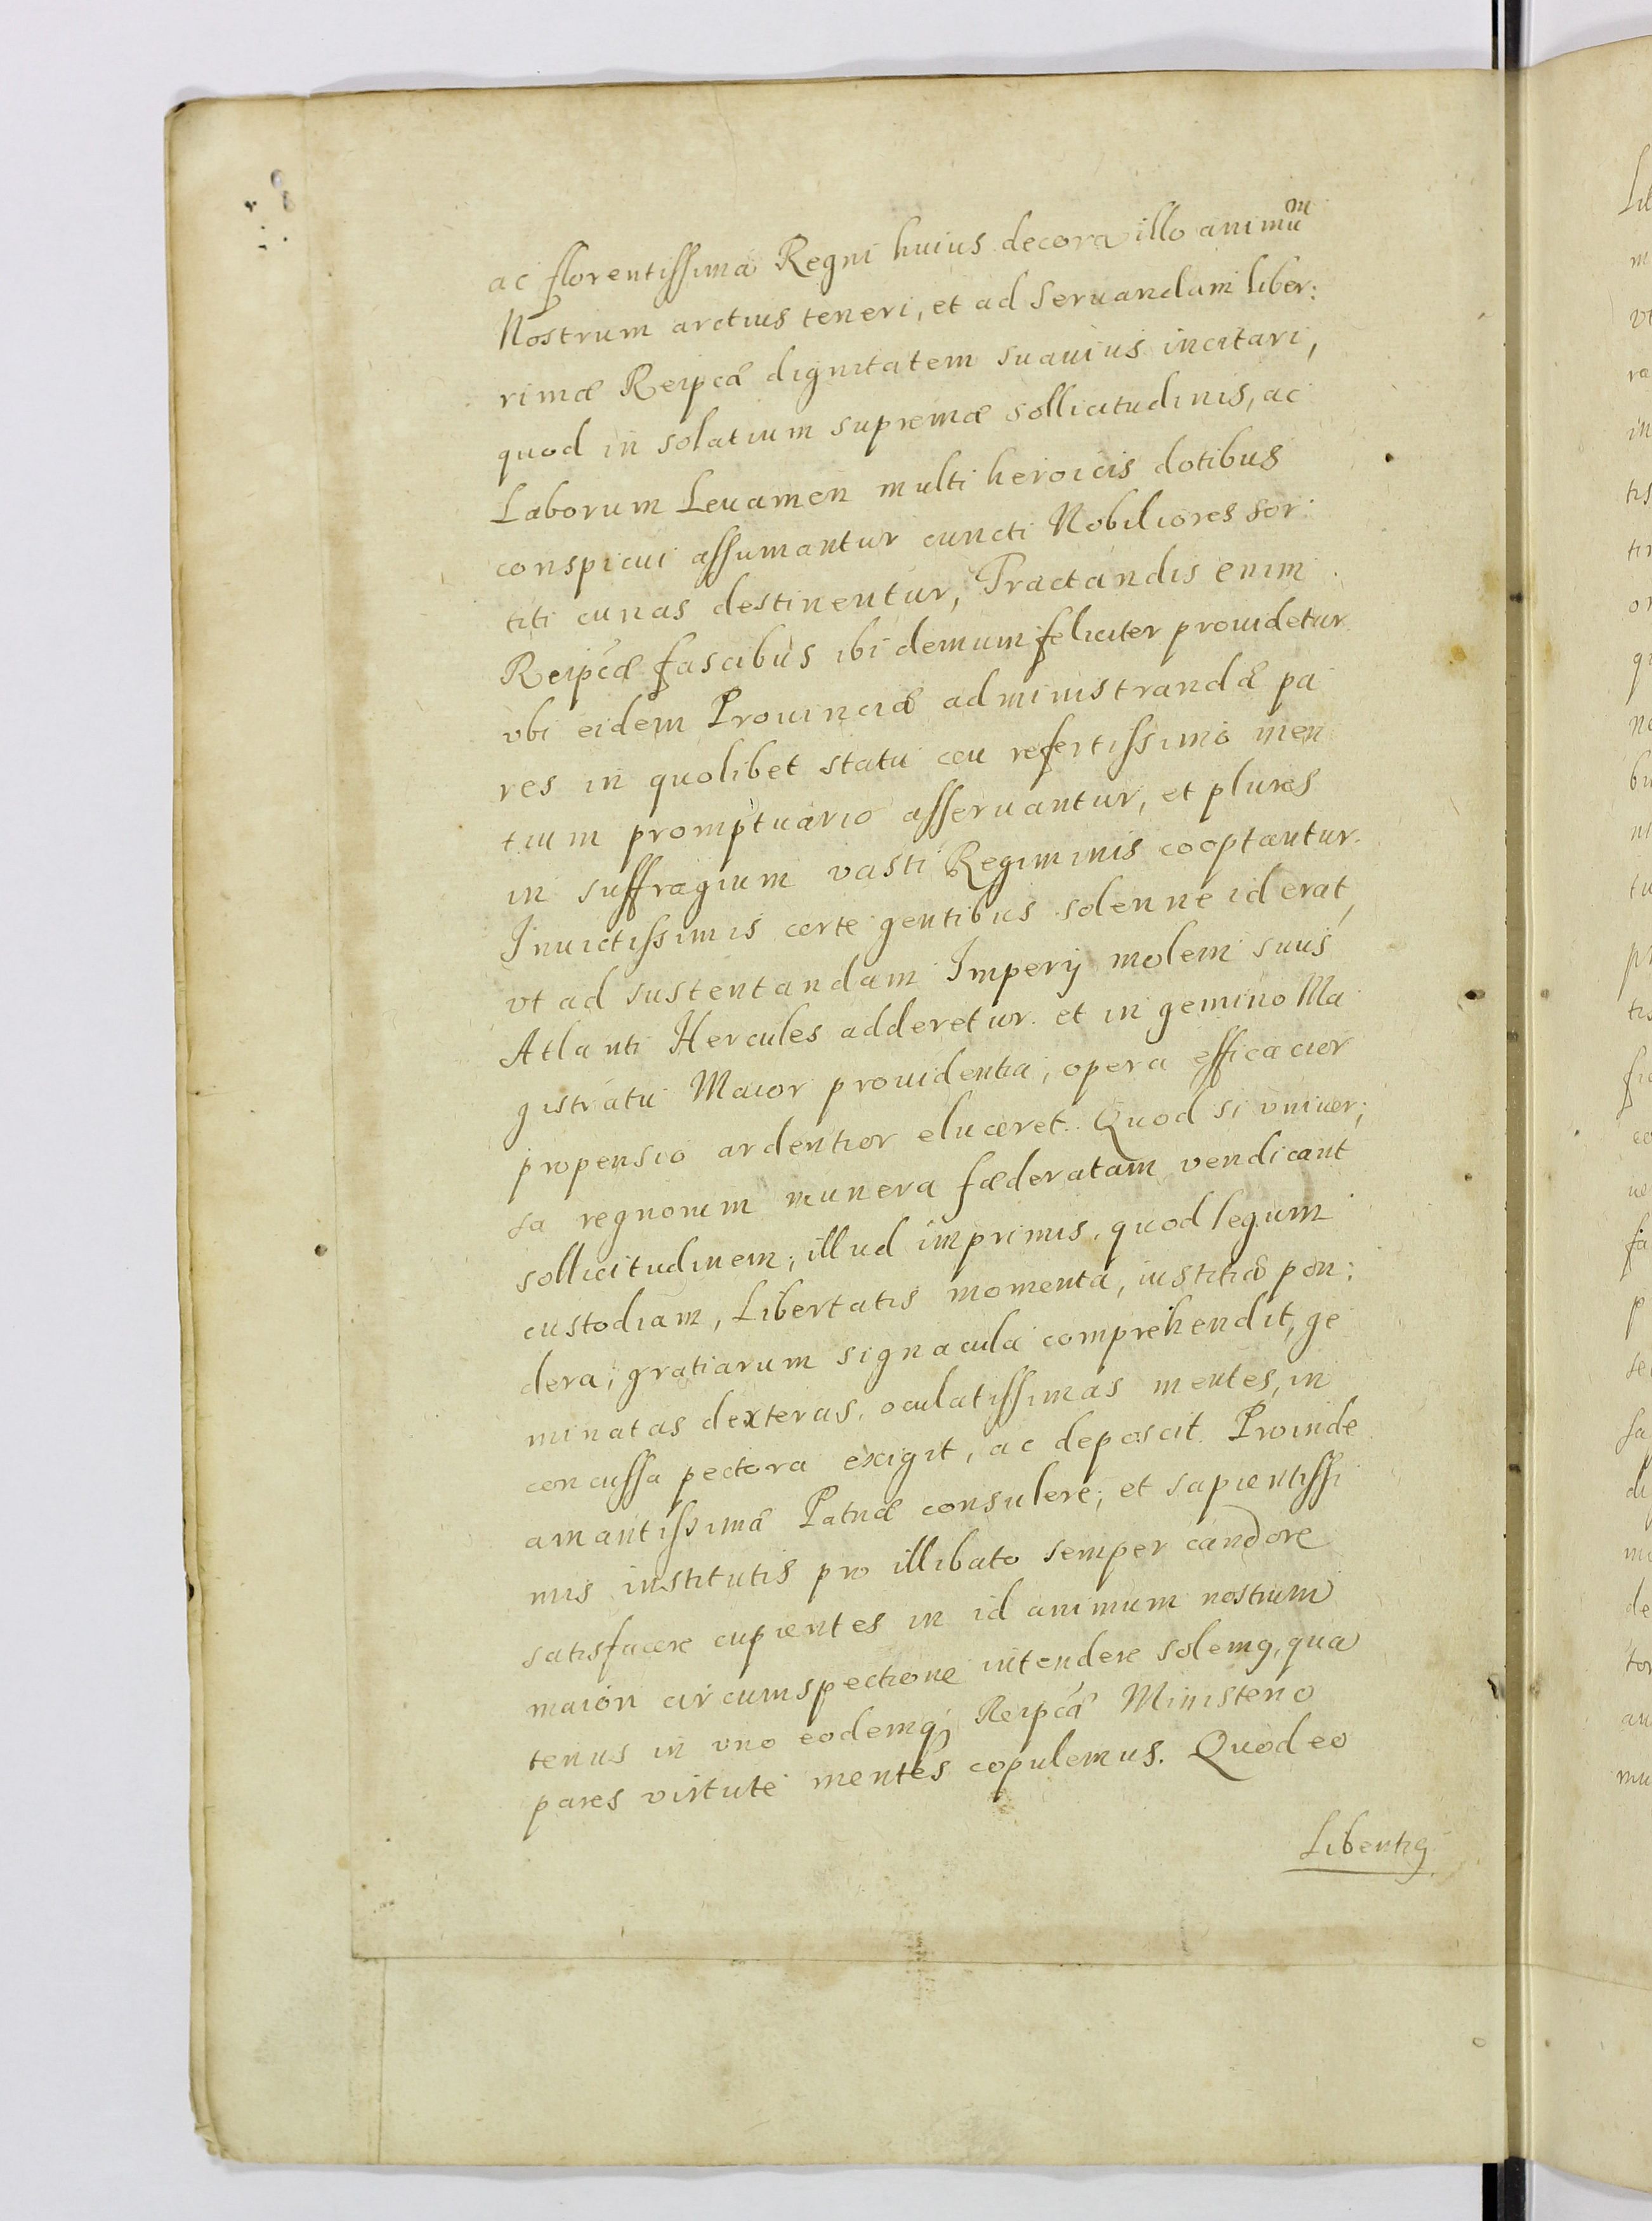 ac florentissima Regni huius decora illo animũm
Nostrum arctius teneri, et ad seruandam liber:
rimæ Reipcæ dignitatem suauius incitari,
quod in solatium supremæ sollicitudinis, ac
Laborum Leuamen multi heroicis dotibus
conspicui assumantur cuncti Nobiliores sor:
titi cunas destinentur, Tractandis enim
Reipcæ fascibus ibi demum feliciter prouidetur
vbi eidem Prouinciæ administrandæ pa
res in quolibet statu ceu refertissimo men
tium promptuario asseruantur, et plures
in suffragium vasti Regiminis cooptantur.
Inuictissimis certe gentibus solenne id erat,
vt ad sustentandam Imperij molem suus
Atlanti Hercules adderetur. et in gemino Ma
gistratu Maior prouidentia, opera efficacior
propensio ardentior eluceret. Quod si vniuer;
sa regnorum munera fæderatam vendicant
sollicitudinem; illud imprimis, quod legum
custodiam, Libertatis momenta, iustitiæ pon:
dera, gratiarum signacula comprehendit, ge
minatas dexteras, oculatissimas mentes, in
concussa pectora exigit, ac deposcit. Proinde
amantissimæ Patriæ consulere, et sapientissi
mis institutis pro illibato semper candore
satisfacere cupientes in id animum nostrum
maiori circumspectione intendere solemg, qua
tenus in vno eodemq; Reipcæ Ministerio
pares virtute mentes copulemus. Quod eo
Libentig